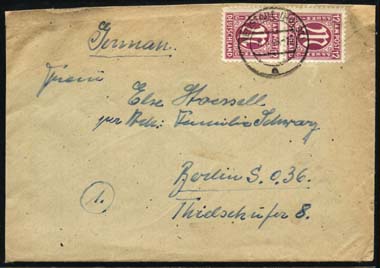 German.
Else Stoessell
per Adr: Familie Schwarz
Berlin S.O.36.
Thielschufer 8.
1.
DEUTSCHLAND
12 AM POST 12
a